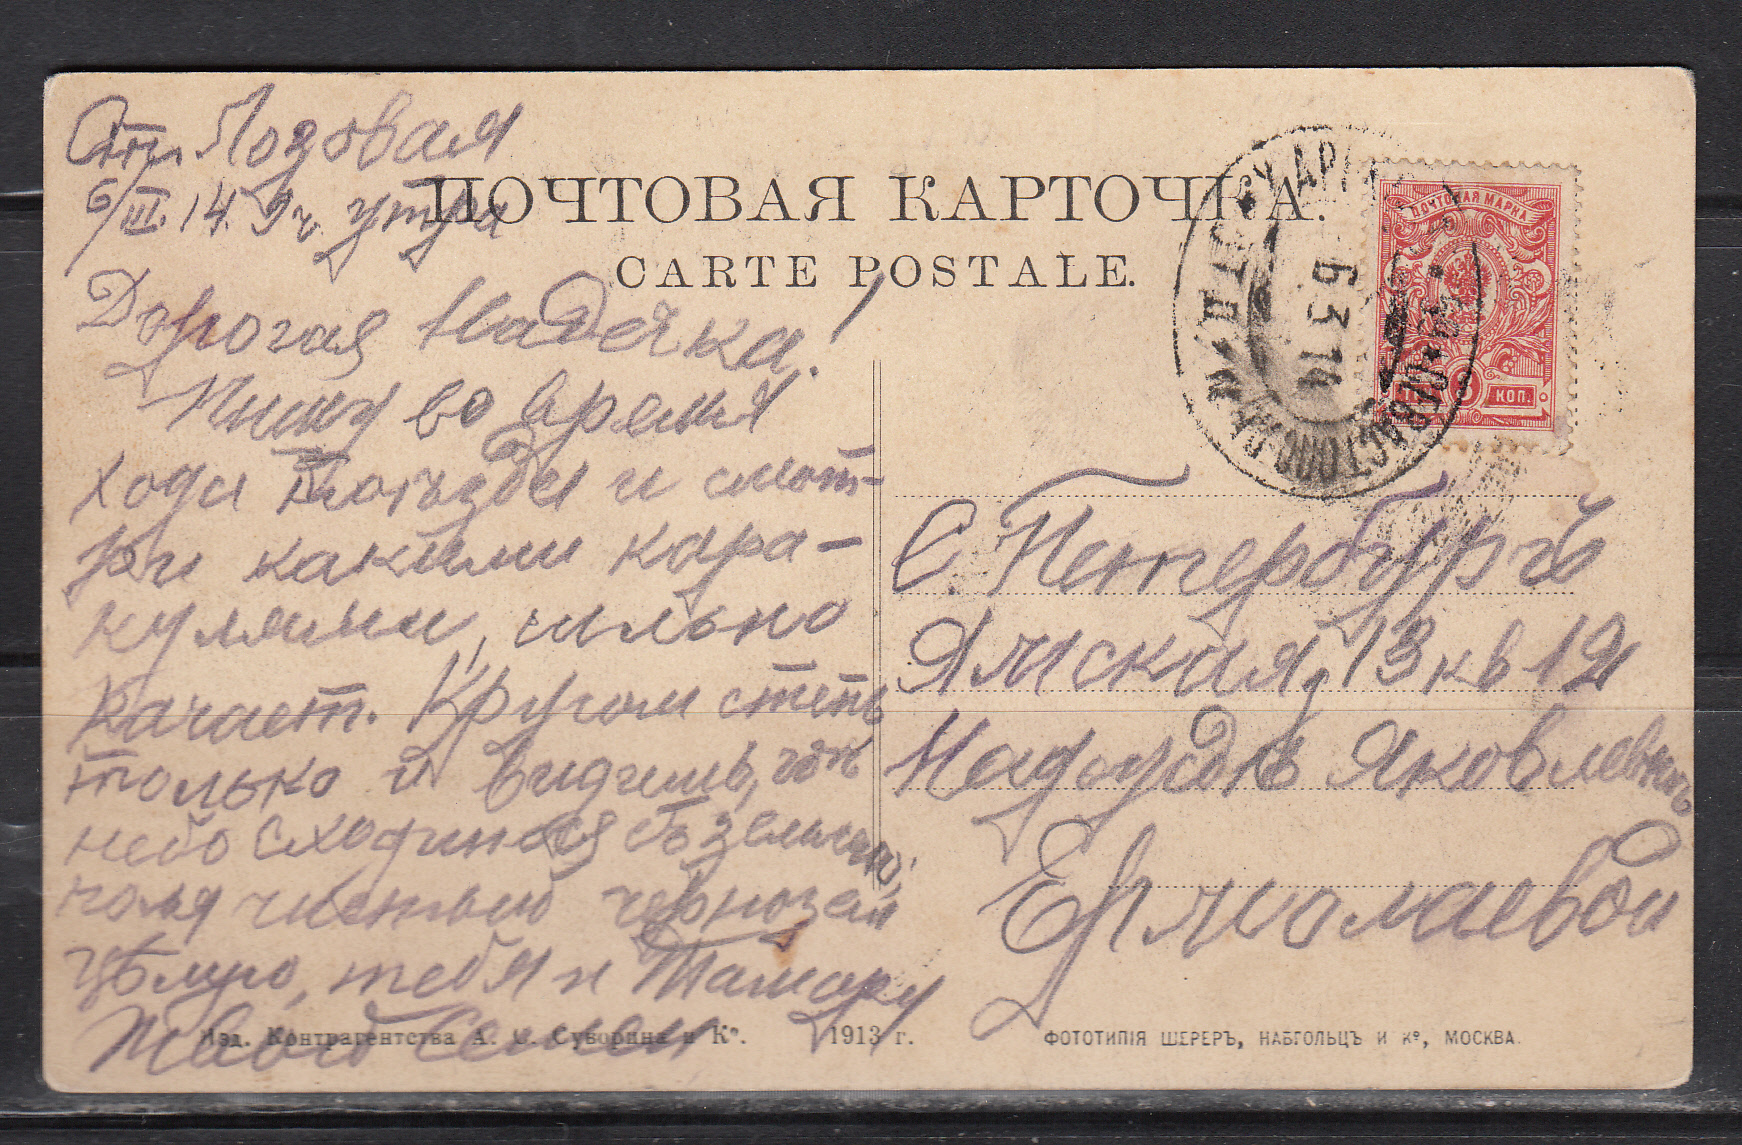 Ст. Лозовая
6/III.14. 9 ч. утра
ПОЧТОВАЯ КАРТОЧКА.
CARTE POSTALE.
Дорогая Надечка!
Пишу во время
хода поѣзда и смот-
ри какими кара-
кулями, сильно
качает. Кругом степь
только и видишь, что
небо сходится съ землею,
поля чистый чернозем
Цѣлую тебя и Тамару
Твой Семен
ПОЧТОВАЯ МАРКА
3 КОП.
6 3 14
С. Петербургъ
Ямская, 13 кв 12
Надеждѣ Яковлевнѣ
Ермолаевой
Изд. Контрагентства А. С. Суворина и Кº. 1913 г.
ФОТОТИПІЯ ШЕРЕРЪ, НАБГОЛЬЦЪ И Кº, МОСКВА.